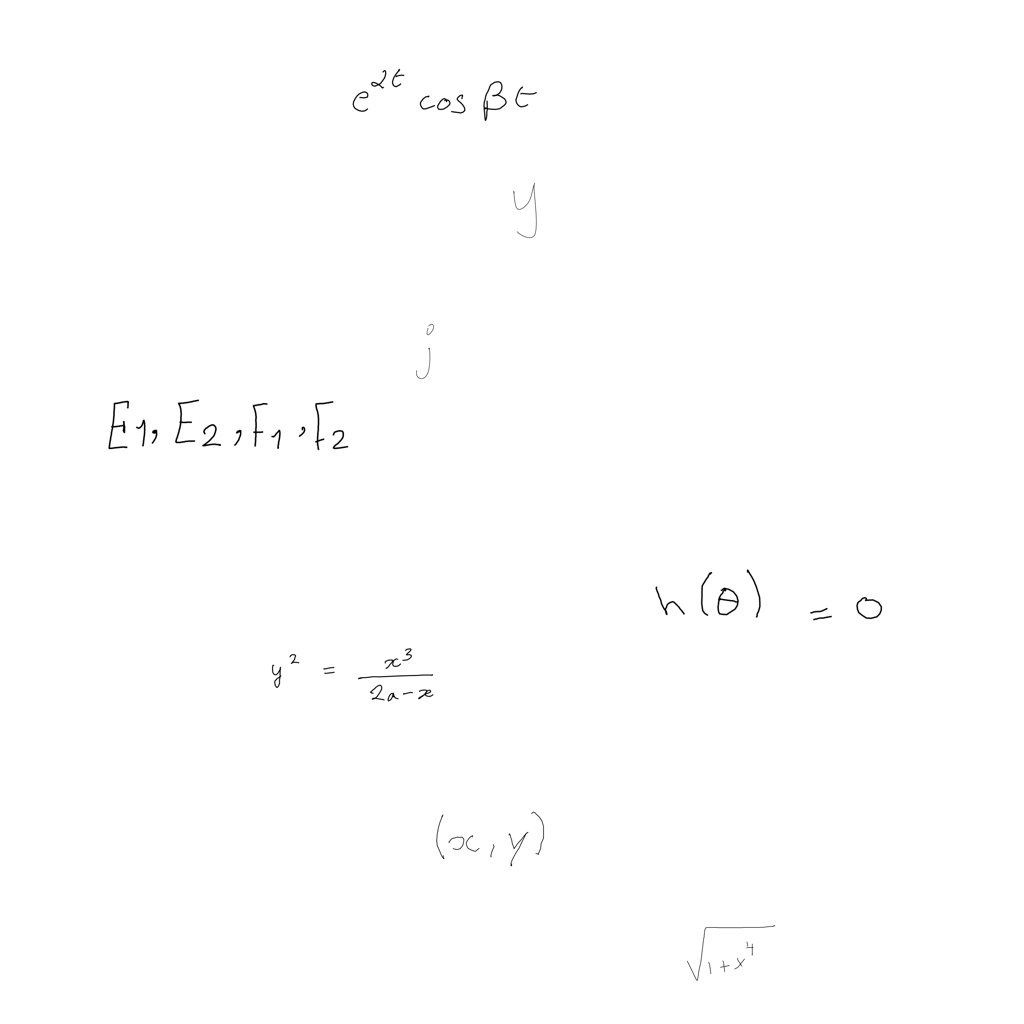 e^{2t} cos βt
y
j
E_1, E_2, F_1, F_2
h(θ) = 0
y^2 = \frac{x^3}{2a-x}
(x, y)
\sqrt{1+x^4}